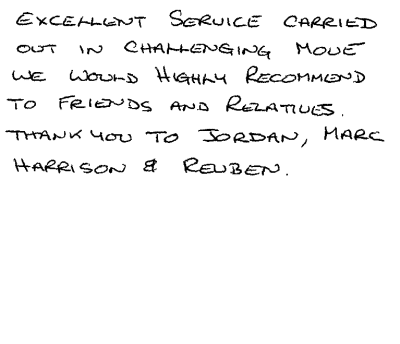 EXCELLENT SERVICE CARRIED
OUT IN CHALLENGING MOVE
WE WOULD HIGHLY RECOMMEND
TO FRIENDS AND RELATIVES.
THANK YOU TO JORDAN, MARC
HARRISON & REUBEN.